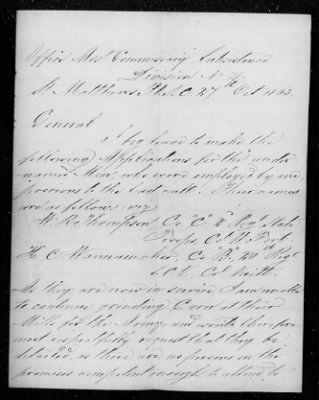 Office Asst Commissary Subsistence
Division No 4
St. Matthews Ph. S.C. 27th Oct 1863
General
I beg leave to make the
following Applications for the under
named Men, who were employed by me
previous to the last call. Their names
are as follows: viz
W. R. Thompson Co "C" Regt State
Troops Col W. Ford
H. C. Wannamaker, Co "B", 20th Regt
S.C.V. Col Keitt
As they are now in service I am unable
to continue grinding Corn at their
Mills for the Army, and would therefore
most respectfully request that they be
detailed, as there are no persons on the
premises competent enough to attend to